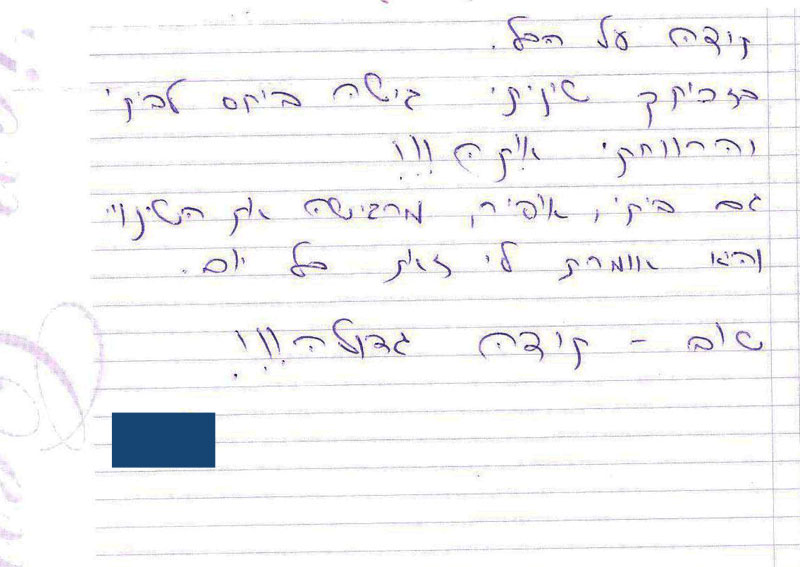 תודה על הכל.
בזכותך שיניתי גישה ביחס לביתי
והרווחתי אותה!!!
גם ביתי, אופיר, מרגישה את השינוי
והיא אומרת לי זאת כל יום.
שוב - תודה גדולה!!!